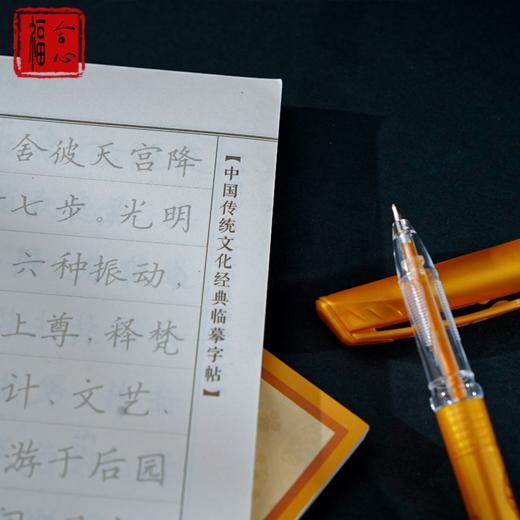 福 合心
舍彼天宫降
七步。光明
六种振动，
上尊，释梵
计、文艺、
游于后园
【中国传统文化经典临摹字帖】